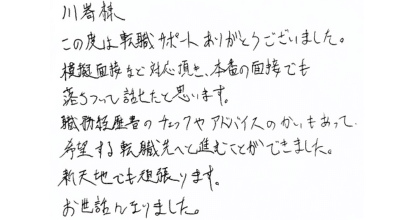 川嵜様
この度は転職サポートありがとうございました。
模擬面接など対応頂き、本番の面接でも
落ちついて話せたと思います。
職務経歴書のチェックやアドバイスのかいもあって、
希望する転職先へと進むことができました。
新天地でも頑張ります。
お世話になりました。